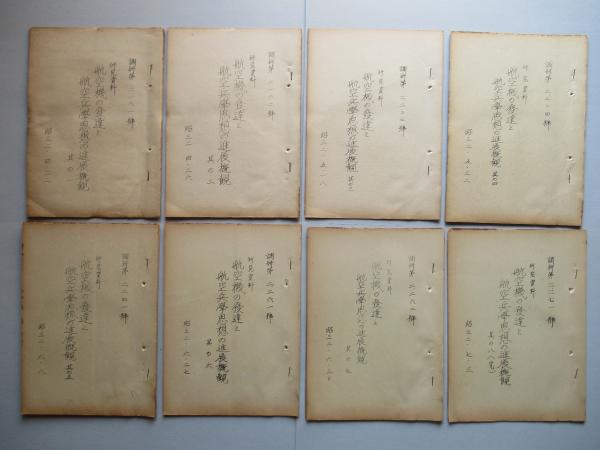 調研第二一八一號
研究資料
航空機の發達と
航空兵學思想の進展概観
其の一
調研第二一八二號
研究資料
航空機の發達と
航空兵學思想の進展概観
其の二
昭二二・四・二六
研究資料
航空機の發達と
航空兵學思想の進展概観
其の三
昭二二・五・一八
研究資料
航空機の發達と
航空兵學思想の進展概観
其の四
昭二二・五・二二
調研第二二四一號
研究資料
航空機の發達と
航空兵學思想の進展概観
其の五
昭二二・六・八
調研第二二六一號
研究資料
航空機の發達と
航空兵學思想の進展概観
其の六
昭二二・六・二七
調研第二二六二號
研究資料
航空機の發達と
航空兵學思想の進展概観
其の七
昭二二・六・三〇
調研第二二七一號
研究資料
航空機の發達と
航空兵學思想の進展概観
其の八(完)
昭二二・七・三